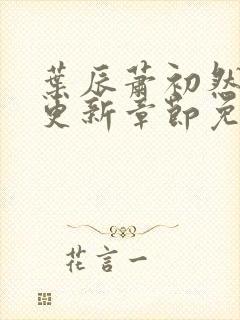 葉辰蕭初然
更新章節免
花言一